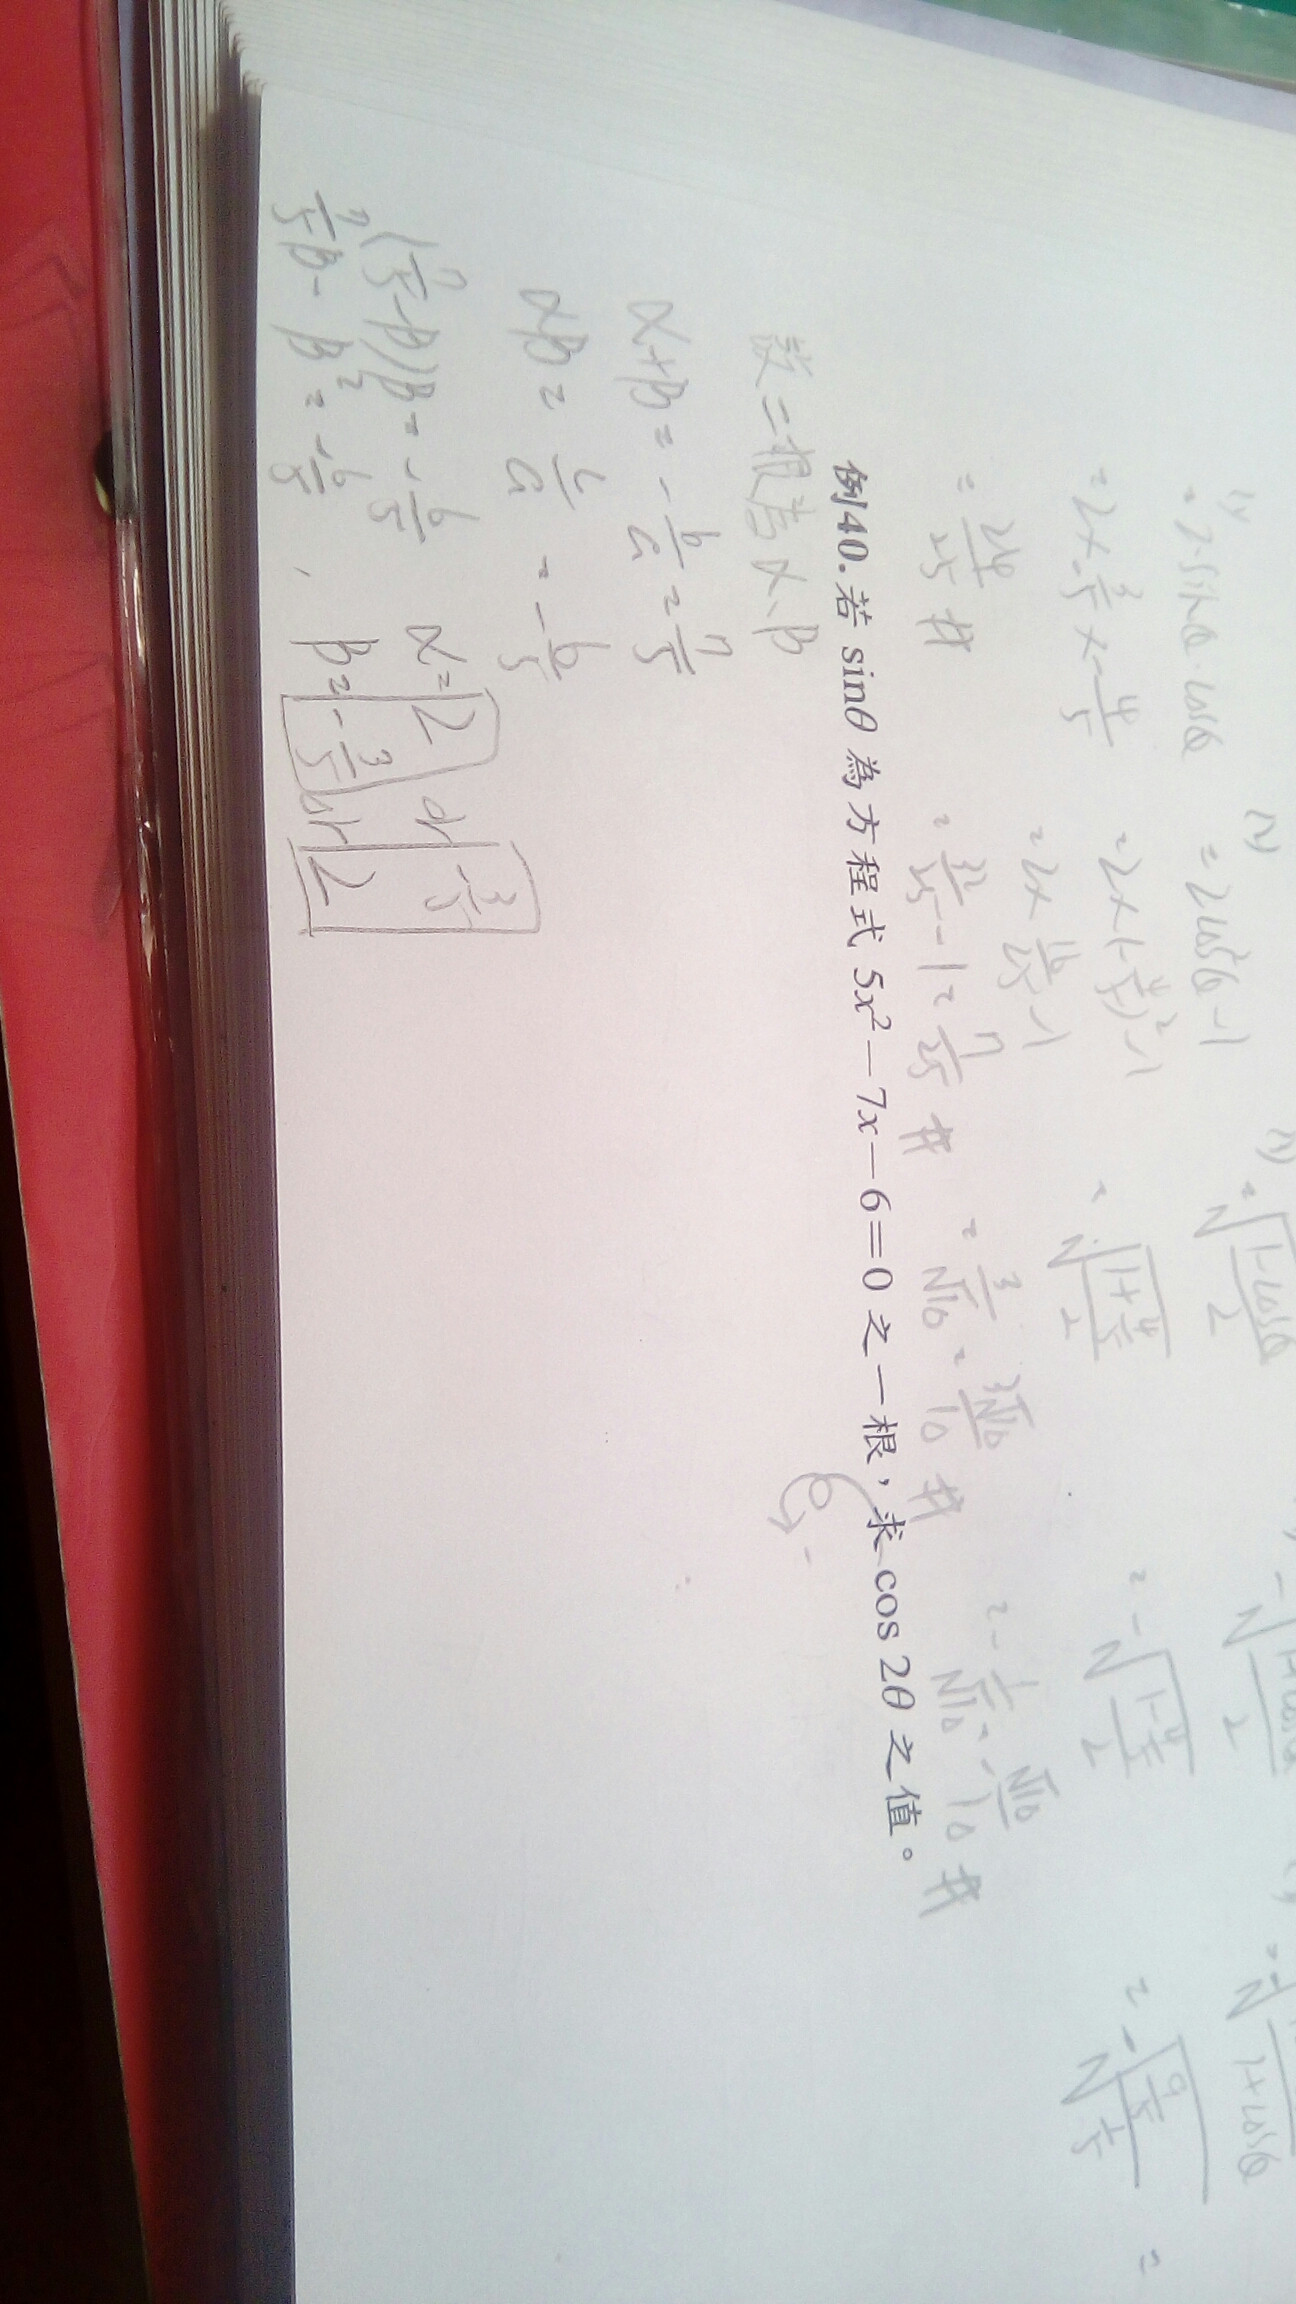 (1)
= 2·sinθ·cosθ
= 2×-3/5×-4/5
= 24/25 #
(2)
= 2cos²θ-1
= 2×(-4/5)²-1
= 2×16/25-1
= 32/25-1=7/25 #
= √(1-cosθ/2)
= √(1+4/5/2)
= 3/√10 = 3√10/10 #
= -√(1-4/5/2)
= -1/√10 = -√10/10 #
例40.若 sinθ 為方程式 5x²-7x-6=0 之一根,求 cos 2θ 之值。
二根為α、β
α+β=-b/a=7/5
αβ=c/a=-6/5
(7/5-β)β=-6/5
7/5β-β²=-6/5
α=2 or -3/5
β=-3/5 or 2